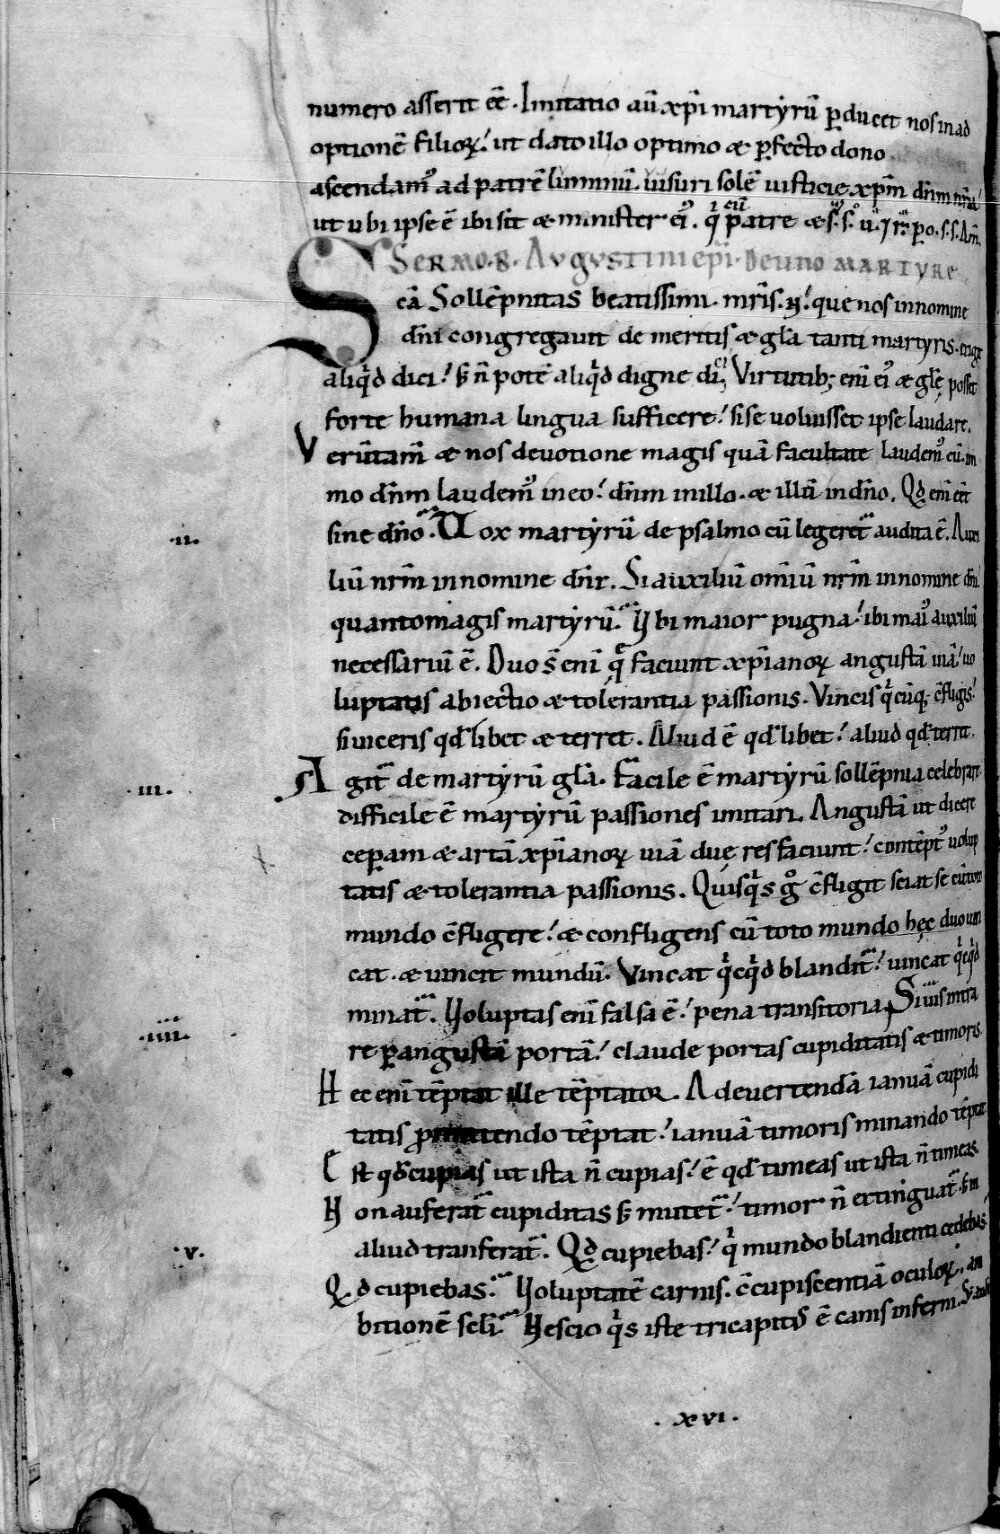 numero asserit ēē. Imitatio aū xp̄i martyrū ꝑducet nos in ad
optionē filioꝝ. ut dato illo optimo & ꝑfecto dono
ascendam᷒ ad patrē luminū. uisuri solē iusticie xp̄m dn̄m nr̄m
ut ubi ipse ē ibi sit & minister ei᷒. q̄ cū patre &
SERMO. B. AVGVSTINI EP̄I. DE VNO MARTYRE
Scā Sollēpnitas beatissimi. mr̄is. N. que nos in nomine
dn̄i congregauit de meritis & gl̄a tanti martyris. exigit
aliq̇d dici. s; n̄ potē aliq̇d digne dici. Virtutib; enī ei᷒ & gl̄ę posset
forte humana lingua sufficere. si se uoluisset ipse laudare.
Verūtam̄ & nos deuotione magis quā facultate laudem᷒ eū. im
mo dn̄m laudem᷒ in eo. dn̄m in illo. & illū in dn̄o. Qd̄ enī eēt
sine dn̄o. Vox martyrū de psalmo cū legeret᷑ audita ē. Auxi
.ii.
liū nr̄m in nomine dn̄i. Si auxiliū om̄iū nr̄m in nomine dn̄i
quantomagis martyrū. Vbi maior pugna. ibi mai᷒ auxiliū
necessariū ē. Duo s̄ enī q̄ faciunt xp̄ianoꝝ angustā uiā. uo
luptatis abiectio & tolerantia passionis. Vincis q̇cūq; c̄fligis.
si uiceris qd̄ libet & terret. Aliud ē qd̄ libet. aliud qd̄ terret.
.iii.
Agit᷑ de martyrū gl̄a. Facile ē martyrū sollēpnia celebrare.
difficile ē martyrū passiones imitari. Angustā ut dicere
ceperam & artā xp̄ianoꝝ uiā due res faciunt. contēpt᷒ uolup
tatis & tolerantia passionis. Quisq̇s gͦ c̄fligit sciat se cū toto
mundo c̄fligere. & confligens cū toto mundo hęc duo uin
cat. & uincit mundū. Vincat q̇cq̇d blandit᷑. uincat q̇cq̇d
minat᷑. Voluptas enī falsa ē. pena transitoria. Si uis intra
.iiii.
re ꝑ angustā portā. claude portas cupiditatis & timoris.
Hec enī tēptat ille tēptator. Adeuertendā ianuā cupidi
tatis tēptat. ianuā timoris minando tēptat.
Est qd̄ cupias ut ista n̄ cupias. ē qd̄ timeas ut ista n̄ timeas.
Non auferat᷑ cupiditas s; mutet᷑. timor n̄ extinguat᷑. s; in
aliud tranferat᷑. Qd̄ cupiebas. q̇ mundo blandienti cedebas.
.v.
Qd̄ cupiebas. Voluptatē carnis. c̄cupiscentiā oculoꝝ. am
bitionē scl̄i. Nescio q̇s iste tricapitis ē canis inferni.
.xvi.